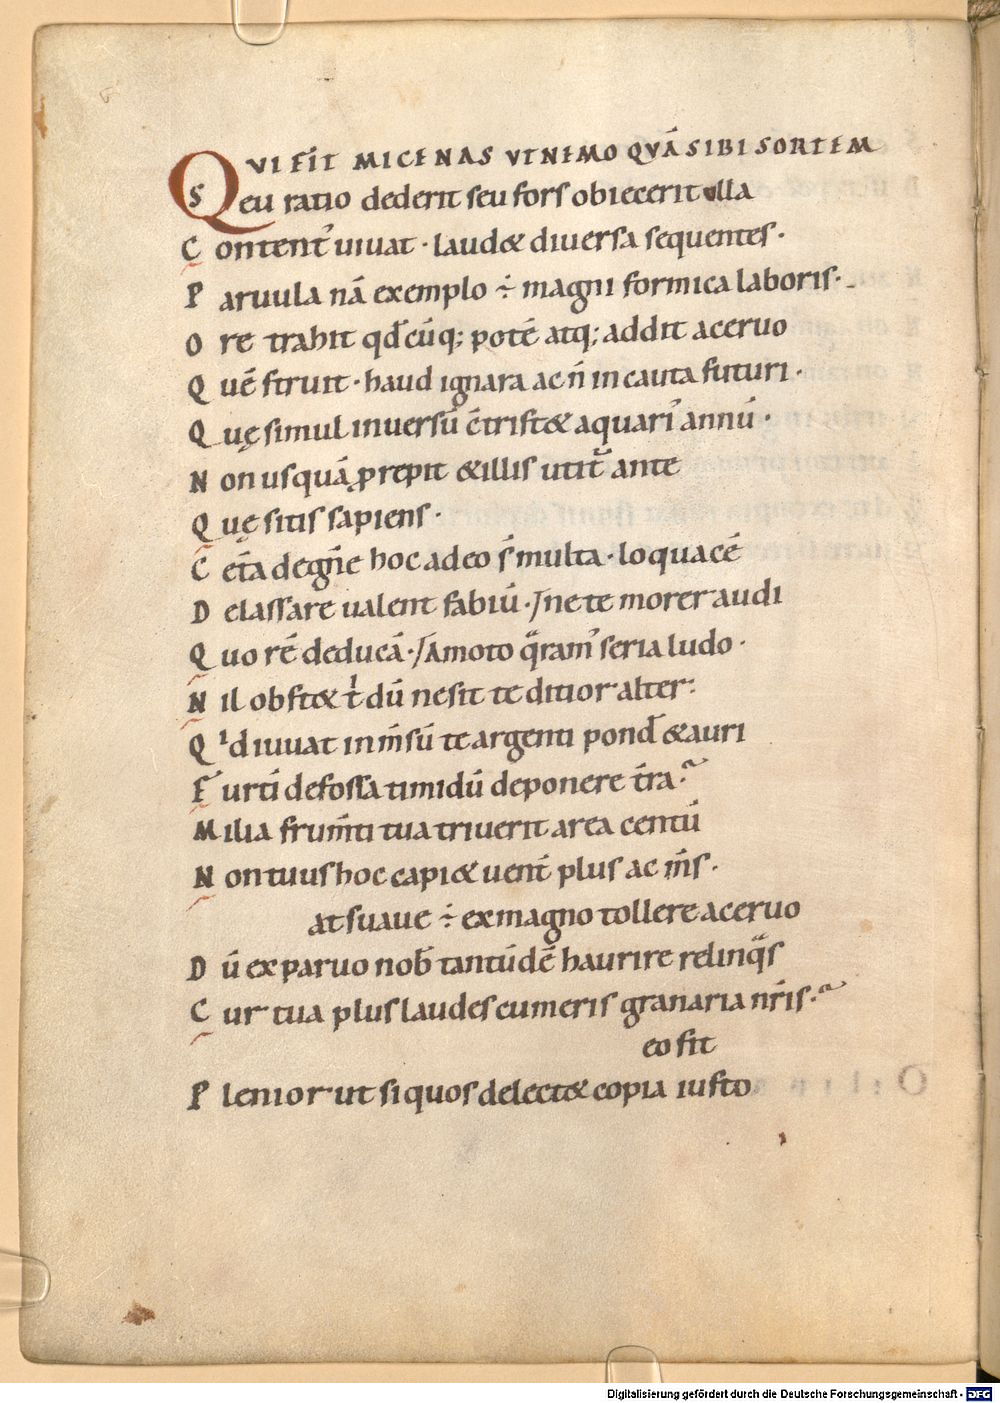 QVI FIT MICENAS VT NEMO QVĀ SIBI SORTEM
Seu ratio dederit seu fors obiecerit ulla
Content᾽ uiuat · laud& diuersa sequentes ·
Paruula nā exemplo ÷ magni formica laboris ·
Ore trahit qđcūq; potē atq; addit aceruo
Quē struit · haud ignara ac ñ incauta futuri ·
Quę simul inuersū c̄trist& aquari᾽ annū ·
Non usquā prepit & illis utit᾽ ante
Quę sitis sapiens ·
Cet̄a de geñe hoc adeo s̄ multa · loquacē
Delassare ualent fabiū · / ne te morer audi
Quo rē deducā · / Amoto q̄ram᾽ seria ludo ·
Nil obst& t̍ dū ne sit te ditior alter :
Qͥd iuuat inm̄sū te argenti pond᾽ & auri
Furti defossa timidū deponere t̄ra ·
Milia frum̄ti tua triuerit area centū
Non tuus hoc capi& uent᾽ plus ac m̄s ·
at suaue ÷ ex magno tollere aceruo
Dū ex paruo noƀ tantūdē haurire relinq̄s
Cur tua plus laudes cumeris granaria nr̄is ·
eo fit
Plenior ut si quos delect& copia iusto
Digitalisierung gefördert durch die Deutsche Forschungsgemeinschaft - DFG